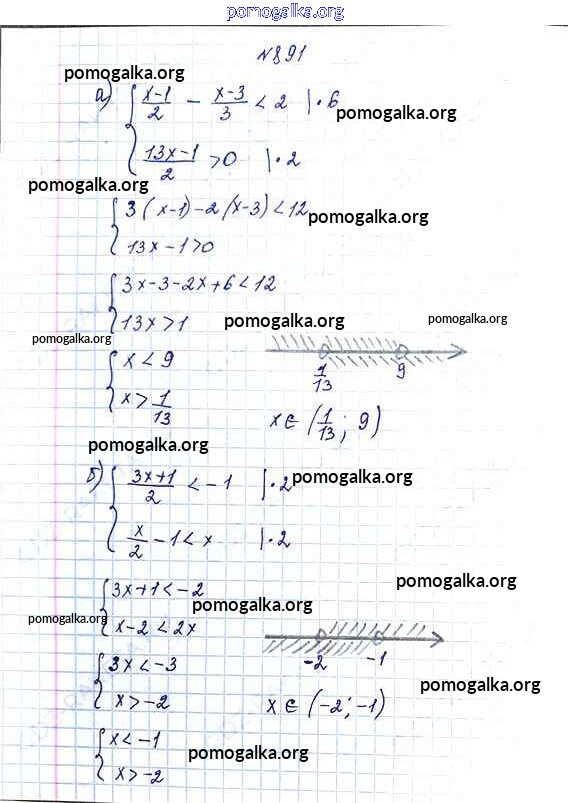 pomogalka.org
№891
pomogalka.org
а) { (x-1)/2 - (x-3)/3 < 2 |·6
pomogalka.org
(13x-1)/2 > 0 |·2
pomogalka.org
{ 3(x-1)-2(x-3)<12
pomogalka.org
13x-1>0
{ 3x-3-2x+6<12
13x>1
pomogalka.org
pomogalka.org
pomogalka.org
{ x<9
x > 1/13
1/13 9
x∈(1/13; 9)
pomogalka.org
б) { (3x+1)/2 < -1 |·2
pomogalka.org
x/2 - 1 < x |·2
pomogalka.org
{ 3x+1<-2
pomogalka.org
pomogalka.org
x-2<2x
-2 -1
{ 3x<-3
x>-2
pomogalka.org
x∈(-2; -1)
{ x<-1
x>-2
pomogalka.org